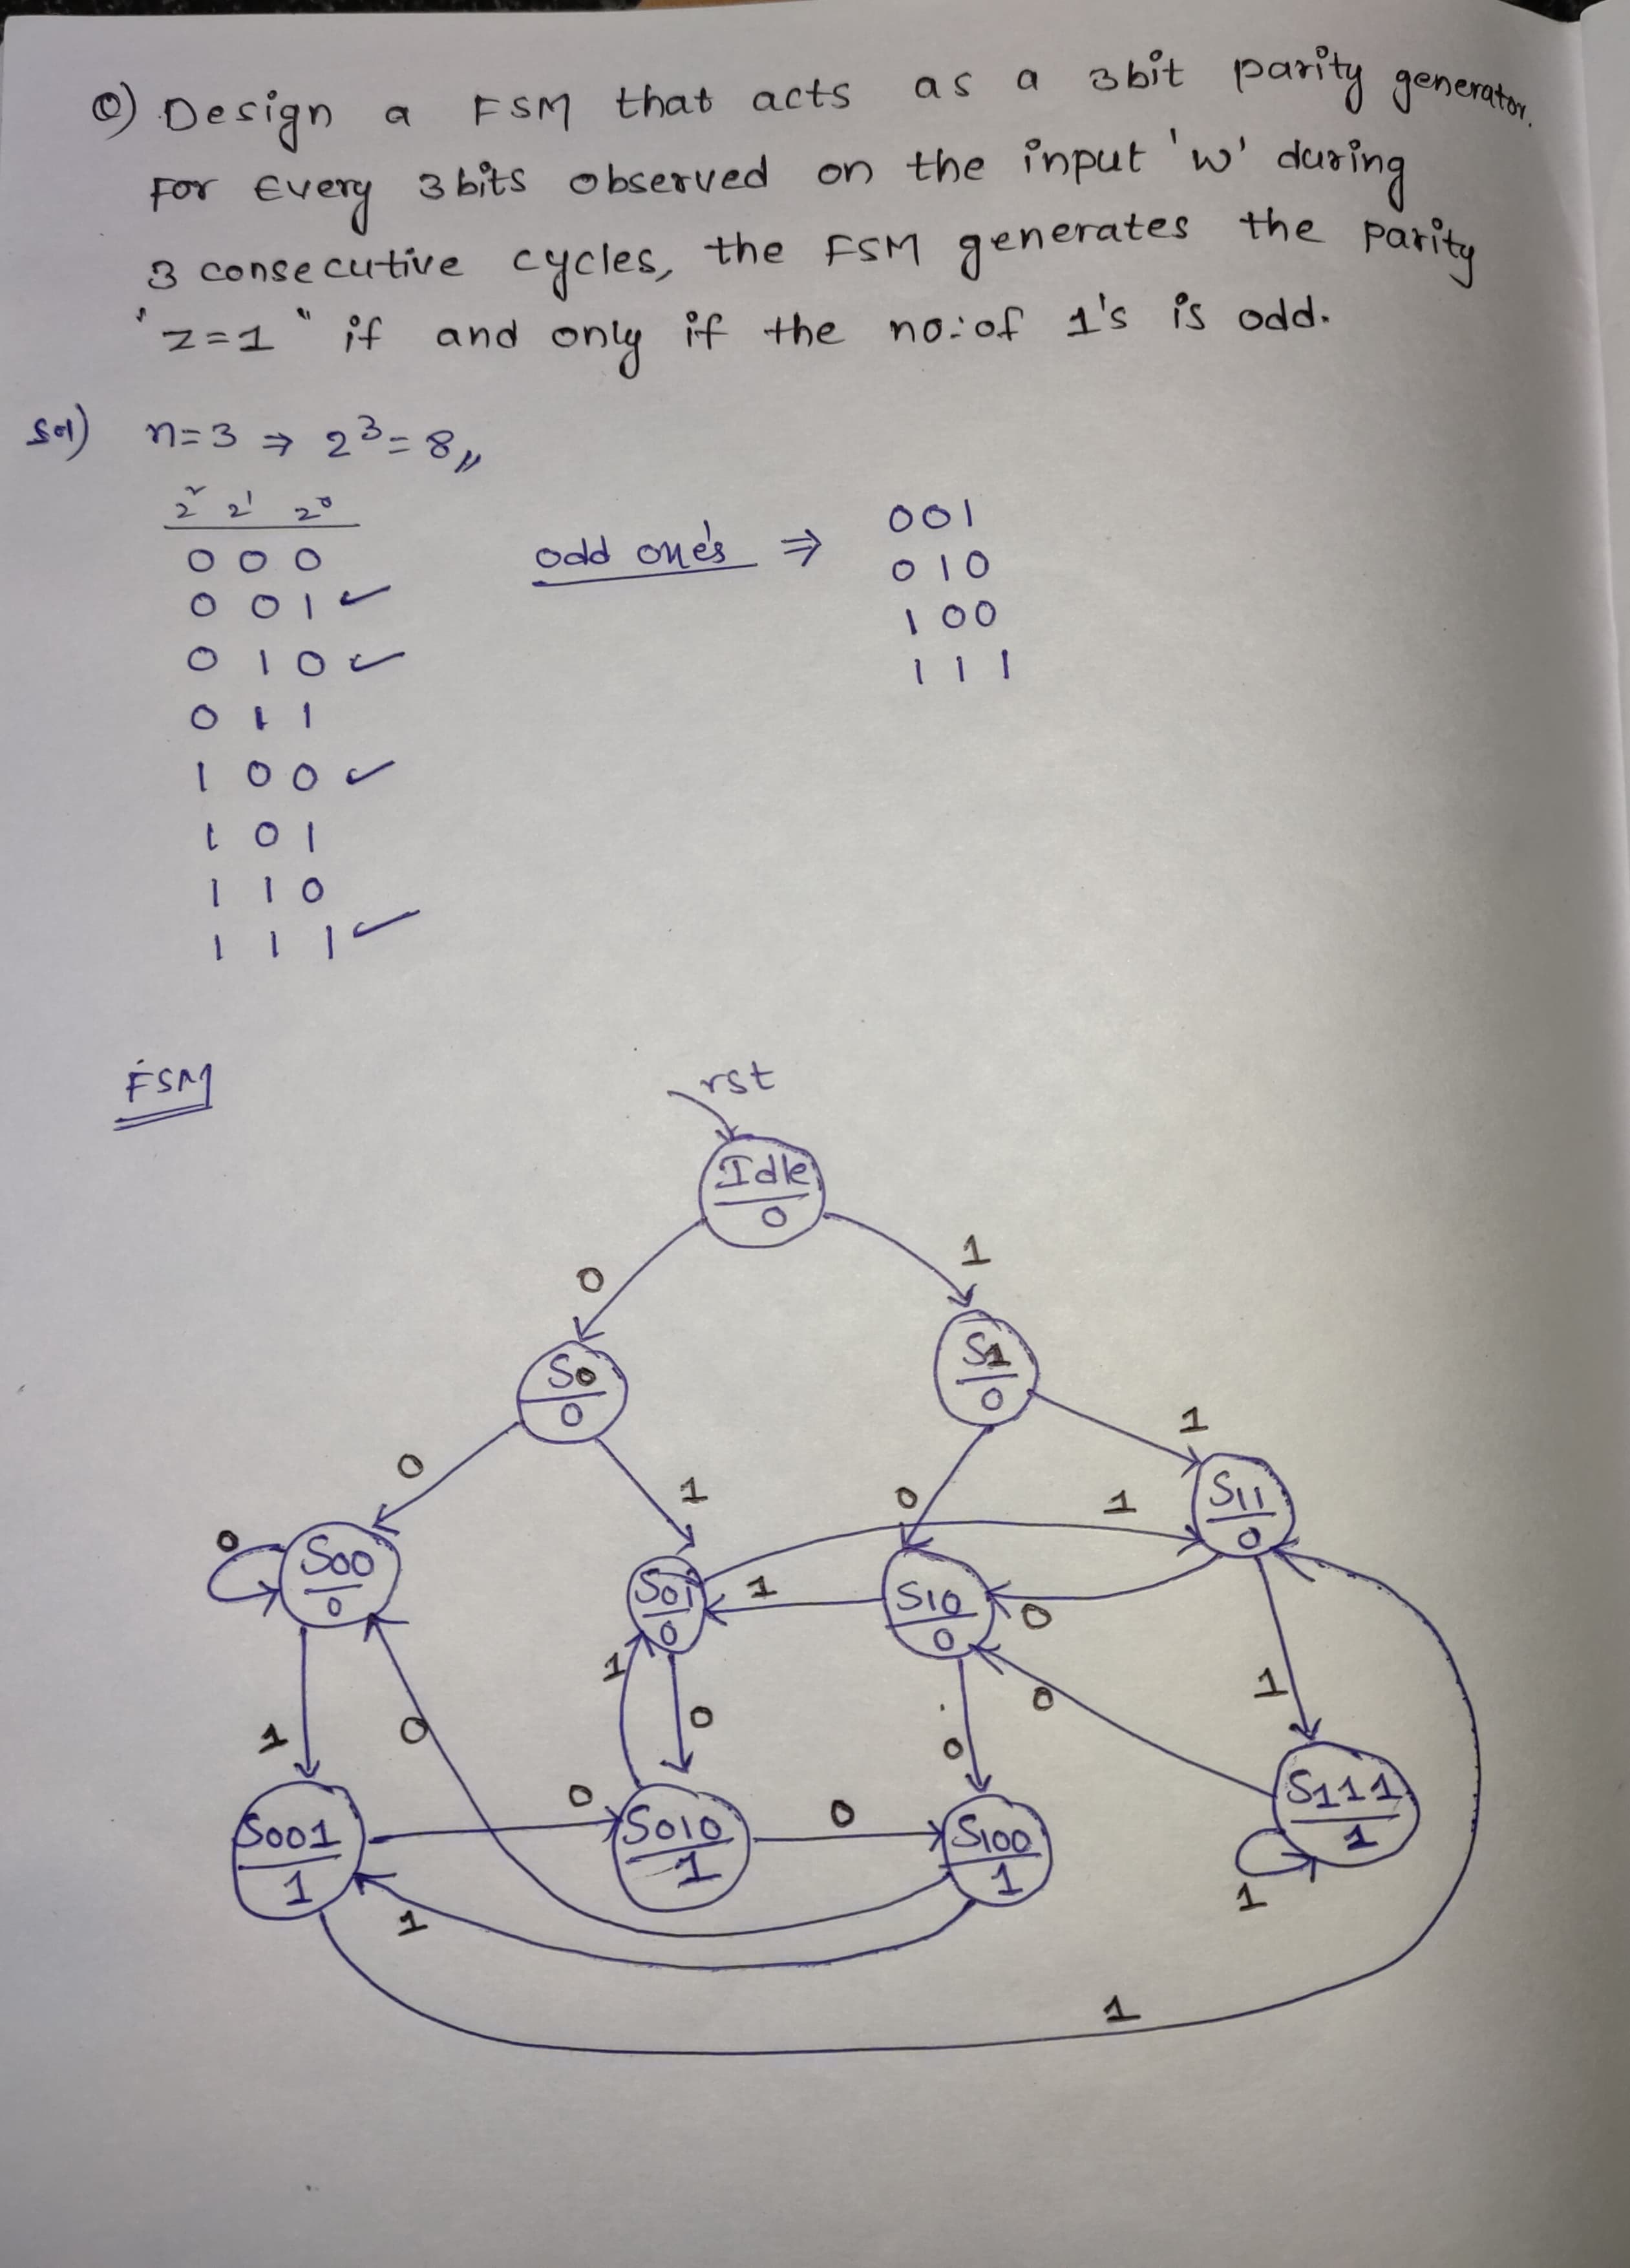 Q) Design a FSM that acts as a 3bit parity generator.
For Every 3bits observed on the input 'w' during
3 consecutive cycles, the FSM generates the parity
'z=1" if and only if the no:of 1's is odd.
Sol) n=3 ⇒ 2³=8,,
2² 2¹ 2⁰
0 0 0
0 0 1 ✓
0 1 0 ✓
0 1 1
1 0 0 ✓
1 0 1
1 1 0
1 1 1 ✓
odd one's ⇒
001
010
100
111
FSM
rst
Idle
0
0
1
S0
0
S1
0
0
1
0
1
1
S11
0
0
S00
0
S01
0
1
S10
0
0
1
0
1
0
0
0
1
S001
1
0
S010
1
0
S100
1
S111
1
1
1
1